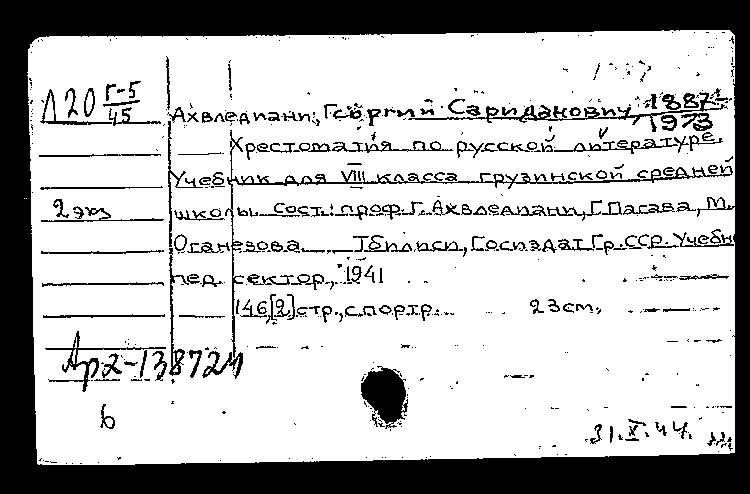 Л20 Г-5/45
Ахвледиани, Георгий Сариданович 1887-1973
Хрестоматия по русской литературе.
Учебник для VIII класса грузинской средней
2 экз
школы. Сост.: проф. Г. Ахвледиани, Г. Пагава, М.
Оганезова. Тбилиси, Госиздат Гр.ССР. Учебн
пед. сектор, 1941
146,[2] стр., с портр. 23 см.
Ар2-13872
б
31.X.44.